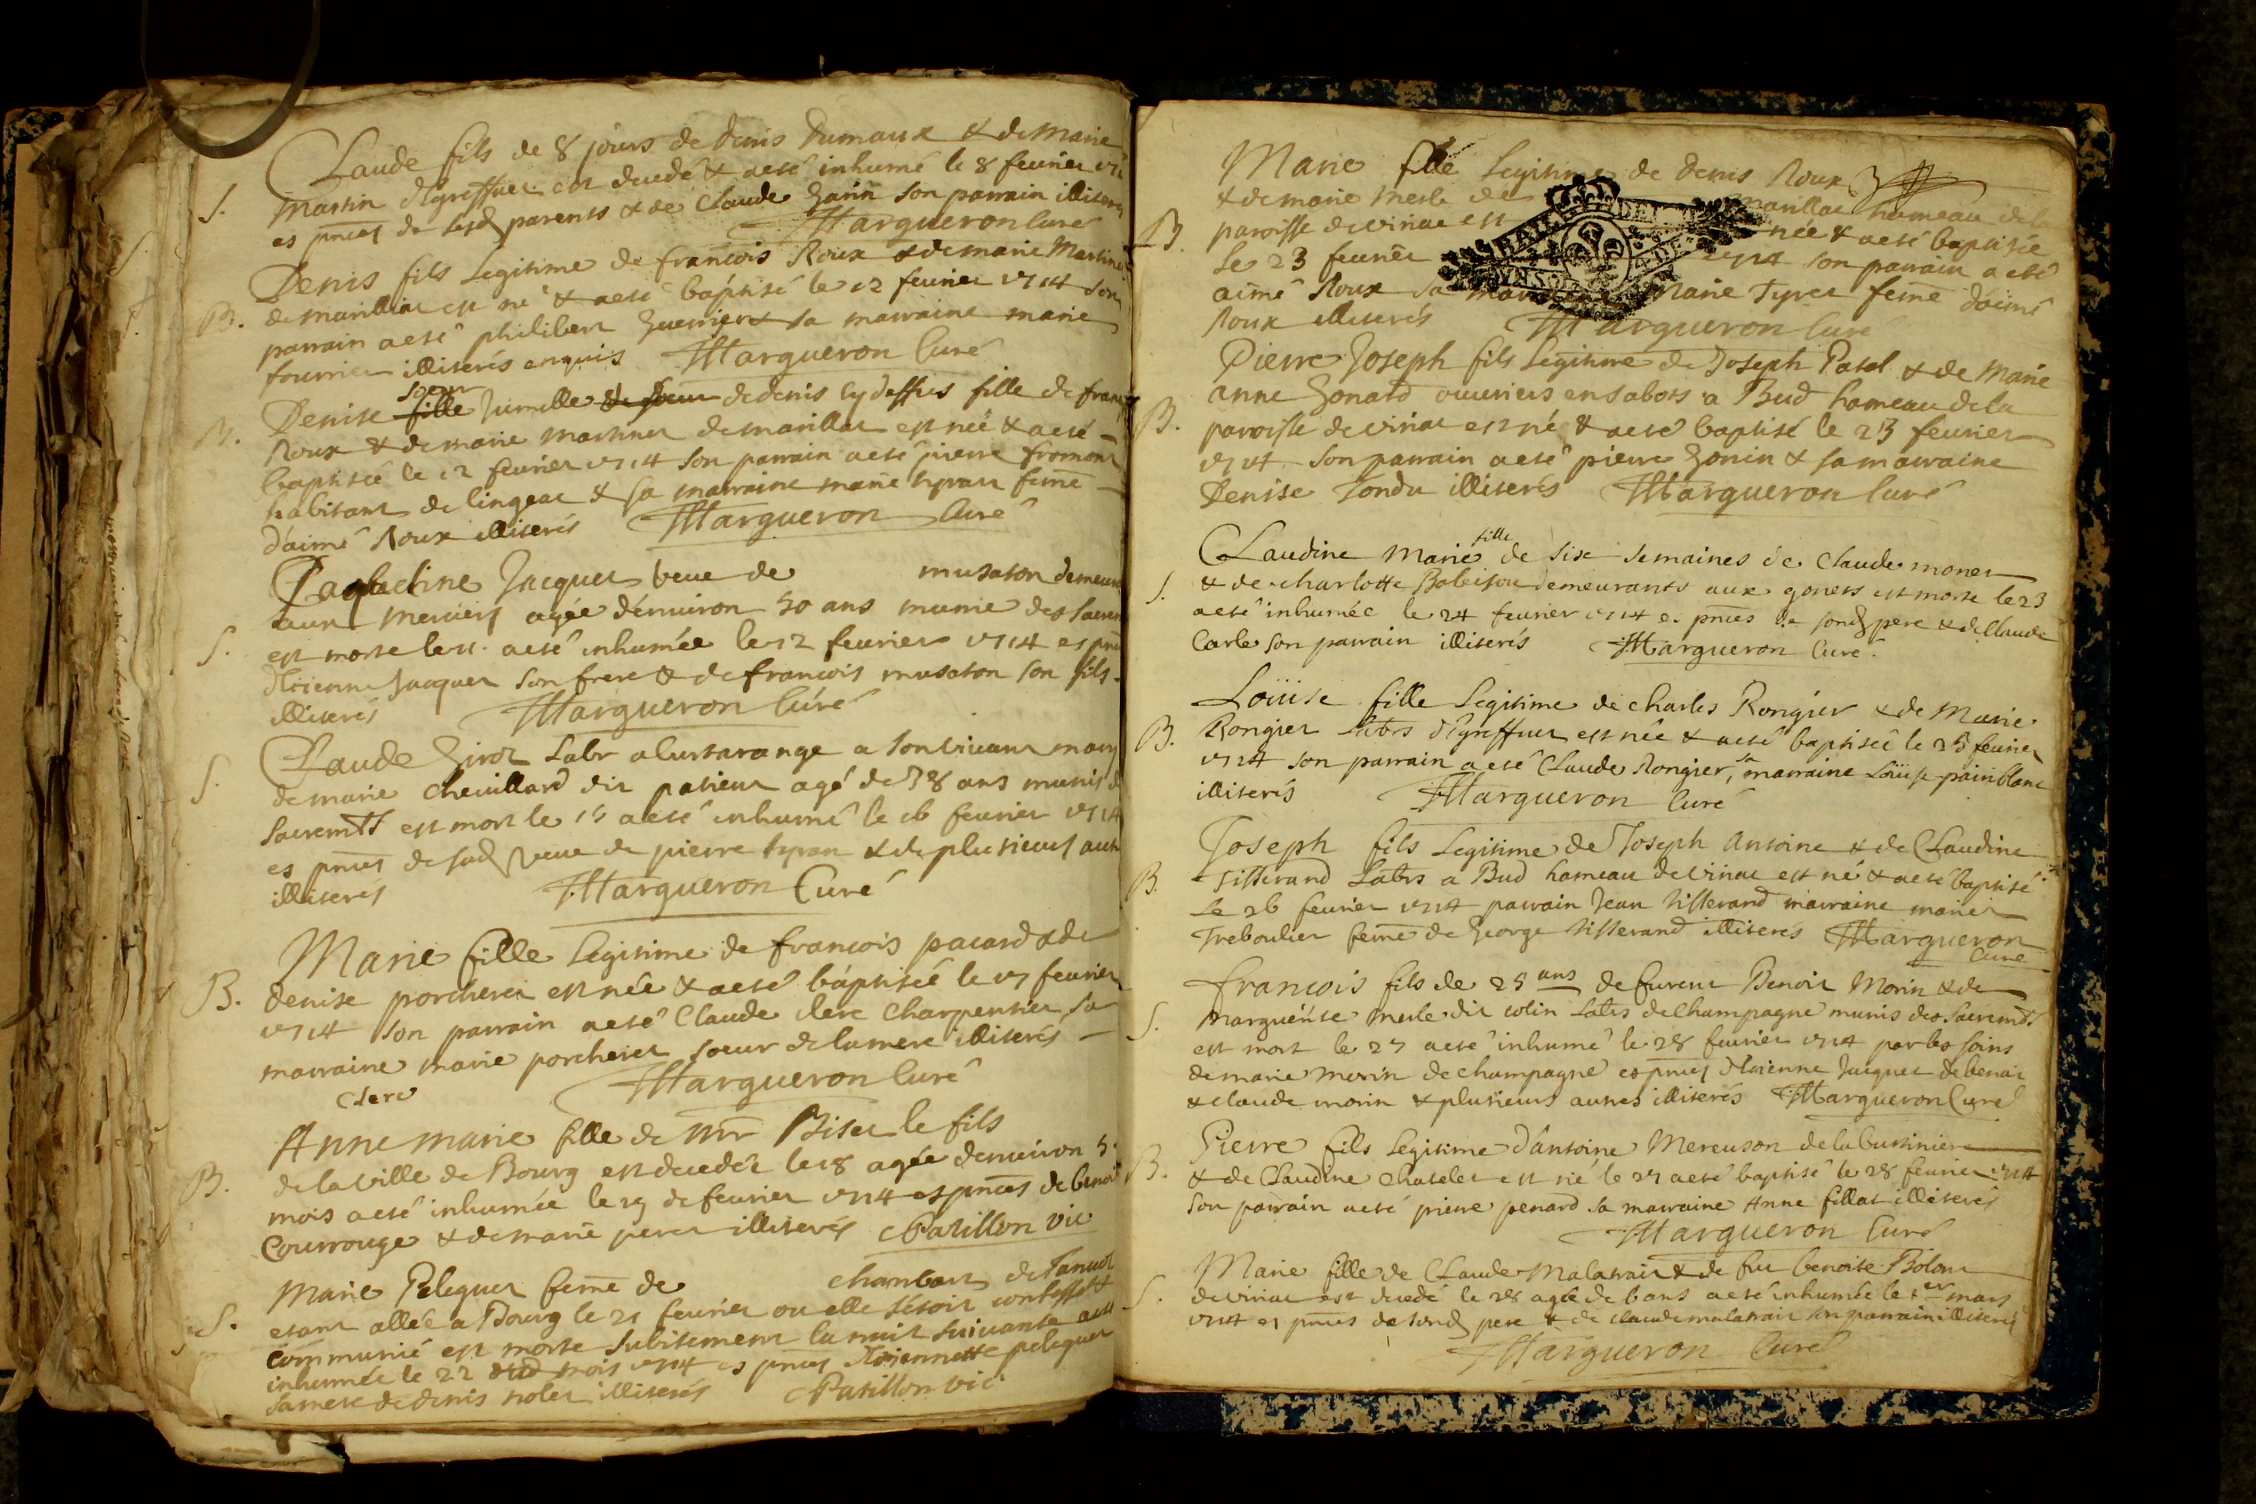 Claude fils de 8 jours de denis Dumaux & de Marie
S. Martin d'Egreffuez est decedé & a eté inhumé le 8 fevrier
es pnces de sesd parents & de Claude son parrain illiterés
Margueron Curé
Denis fils Legitime de francois Roux & de marie Martinet
B. de marillat est né & a eté baptisé le 12 fevrier 1714 son
parrain a eté philibert Guerrier & sa marraine marie
fourrier illiterés enquis Margueron Curé
soeur
Denise fille Jumelle de denis cy dessus fille de
B. Roux & de marie martinet de marillat est née & a eté
baptisée le 12 fevrier 1714 son parrain a eté pierre fromont
habitant de lingeat & sa marraine marie feme
d'aimé Roux illiterés Margueron Curé
Jacquet veue de musaton
aux Merciers agée d'environ 50 ans munie des
S. est morte le 11. a eté inhumée le 12 fevrier 1714 es
Etienne Jacquet son frere & de francois musaton son fils
illiterés Margueron Curé
Claude Labr a a son vivant
S. de marie Chevillard dit patieur agé de 38 ans munis
Sacremts est mort le 15 a eté inhumé le 16 fevrier 1714
es pnces de sad veue de pierre & de plusieurs
illiterés Margueron Curé
Marie fille Legitime de francois pacard & de
B. denise porcheret est née & a eté baptisée le 17 fevrier
1714 son parrain a eté Claude clerc Charpentier, sa
marraine marie porcheret soeur de la mere illiterés
Clerc Margueron Curé
Anne marie fille de mr le fils
B. de la ville de Bourg est decedée le 18 agée d'environ
mois a eté inhumée le 19 de fevrier 1714 es pnces de benoit
Courrouge & de marie peret illiterés Patillon vic
Marie Peleguet feme de
S. etant allée a Bourg le 21 fevrier ou elle s'etoit confessée &
communié est morte subitement la nuit suivante
inhumée le 22 dud mois 1714 es pnces Etiennette peleguet
sa mere de denis nolet illiterés Patillon vic
Marie fille Legitime de denis Roux
& de marie Merle de marillat hameau de la
B. paroisse de viriat est née & a eté baptisée
Le 23 fevrier 1714 son parrain a eté
aimé Roux sa marraine Marie feme d'aimé
Roux illiterés Margueron Curé
Pierre Joseph fils Legitime de Joseph Patel & de Marie
anne Gonard ouvriers en sabots a Bud hameau de la
B. paroisse de viriat est né & a eté baptisé le 23 fevrier
1714 son parrain a eté pierre Gonin & sa marraine
Denise Tondu illiterés Margueron Curé
fille
Claudine Marie de six semaines de Claude monet
S. & de charlotte demeurants aux gonets est morte le 23
a eté inhumée le 24 fevrier 1714 es pnces de sond pere & de Claude
Carle son parrain illiterés Margueron Curé.
Loüise fille Legitime de charles Rongier & de Marie
B. Rongier d'Egreffuez est née & a eté baptisée le 25 fevrier
1714 son parrain a eté Claude Rongier, sa marraine Loüise painblanc
illiterés Margueron Curé
Joseph fils Legitime de Joseph Antoine & de Claudine
B. Tisserand Labrs a Bud hameau de viriat est né & a eté baptisé
Le 26 fevrier 1714 parrain Jean Tisserand marraine marie
Treboulier feme de George Tisserand illiterés Margueron
Curé
francois fils de 25 ans de Benoit Morin & de
S. marguerite merle dit colin Labrs de Champagne munis des Sacremts
est mort le 27 a eté inhumé le 28 fevrier 1714 par les soins
de marie morin de champagne es pnces d'Etienne Jacquet de benoit
& claude morin & plusieurs autres illiterés Margueron Curé
Pierre fils Legitime d'antoine Mercuson
B. & de Claudine Chatelet est né le 27 a eté baptisé le 28 fevrier 1714
son parrain a eté pierre penard sa marraine Anne fillat illiterés
Margueron Curé
Marie fille de Claude Malatrait & de feu benoite
S. de viriat est decedé le 28 agée de 6 ans a eté inhumée le 1er mars
1714 es pnces de sond pere & de claude malatrait son parrain illiterés
Margueron Curé